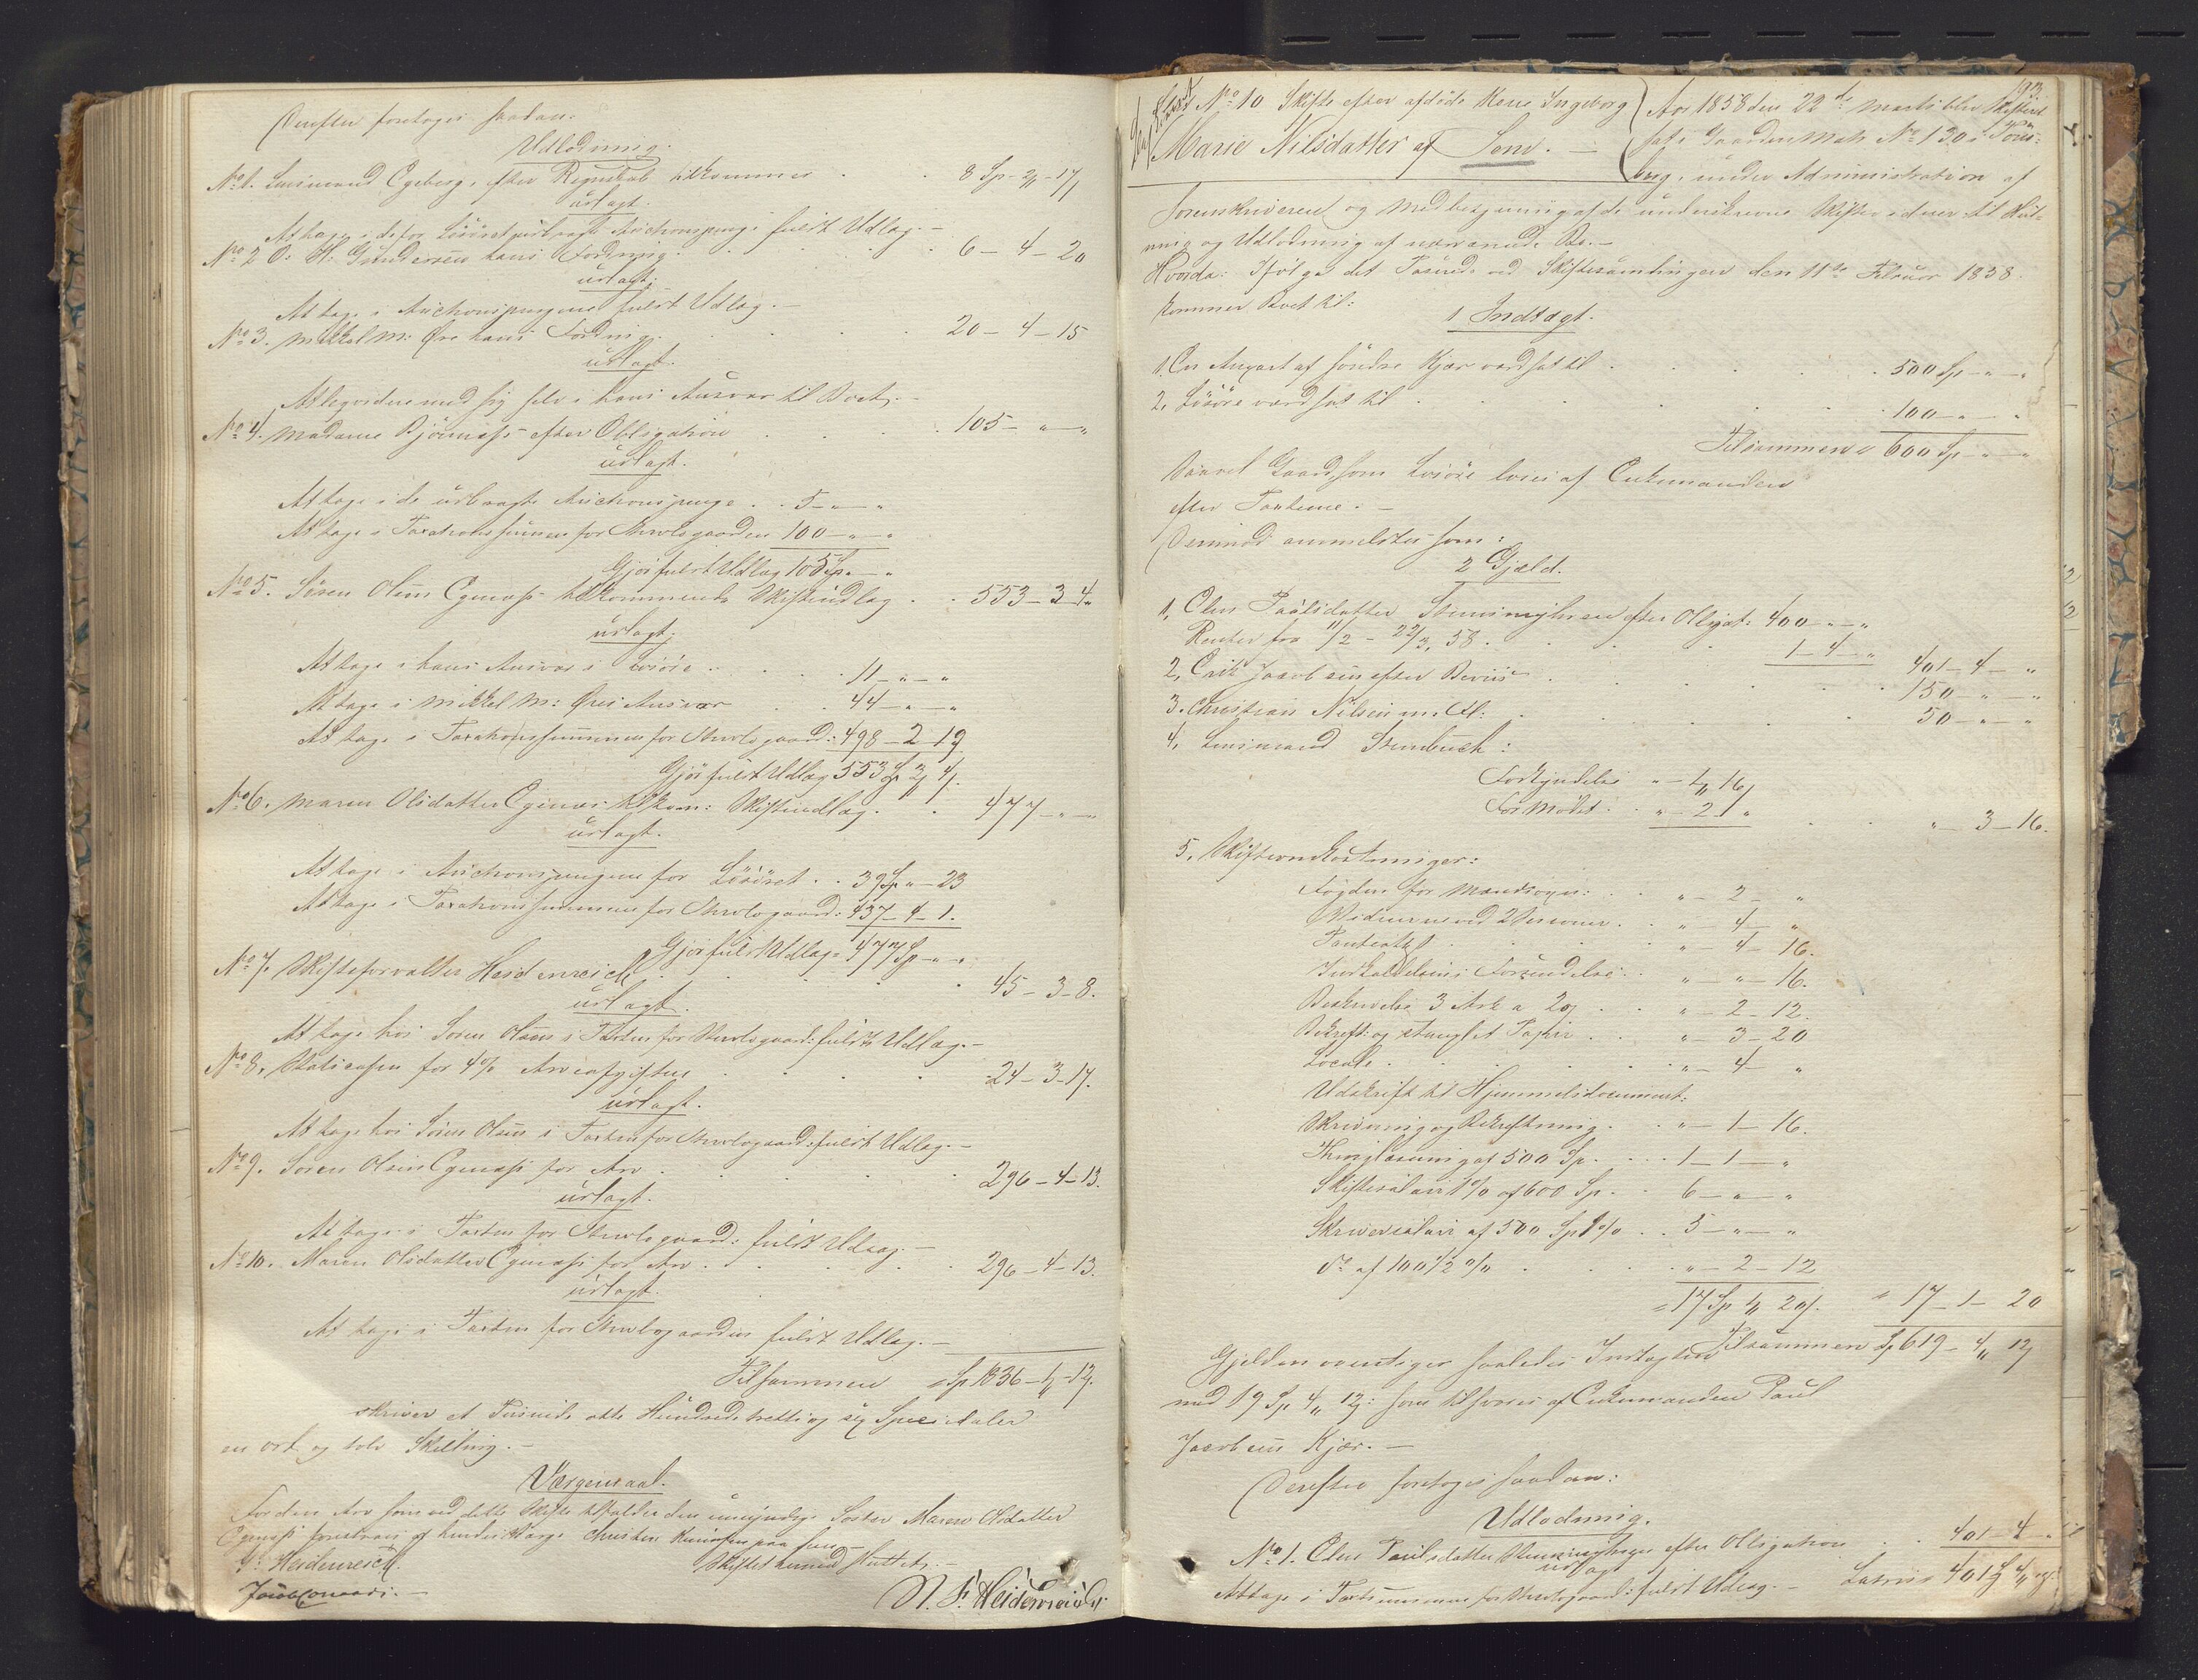 Derefter foretoges saadan:
Udlodning.
No 1. Lensmand Egeberg, efter Regnskab tilkommer 8 Sp - 2 - 17
udlagt.
At tage i de for Løsøret udbragte Auctionspenge fuldt Udlæg. -
No 2 O: H: Gundersen hans Fordring. 6 - 4 - 20
udlagt:
At tage i Auctionspengene fuldt Udlæg. -
No 3. Mikkel M: Øre hans Fordring. 20 - 4 - 15
udlagt.
At liqvidere med sig selv i hans Ansvar til Boet. -
No 4. Madame Bjørnæss efter Obligation 105 - " - "
udlagt.
At tage i de udbragte Auctionspenge 5 - " - "
At tage i Taxationssummen for Arvelsgaarden 100 - " - "
Gjør fuldt Udlæg 105 Sp. " - "
No 5. Søren Olsen Egenæss tilkommende Skifteudlæg 553 - 3 - 4
udlagt:
At tage i hans Ansvar i Løsøre 11 - " - "
At tage i Mikkel M: Øres Ansvar 44 - " - "
At tage i Taxationssummen for Arvelsgaard: 498 - 2 - 19
Gjør fuldt Udlæg 553 Sp 3 4
No 6. Maren Olsdatter Egenæs tilkom: Skifteudlæg 477 - " - "
udlagt.
At tage i Auctionspengene for Løsøret 39 Sp " - 23
At tage i Taxationssummen for Arvelsgaard: 437 - 4 - 1.
Gjør fuldt Udlæg 477 Sp - " - "
No 7. Skifteforvalter Heidenreich 45 - 3 - 8.
udlagt.
At tage hos Søren Olsen i Taxten for Arvelsgaard: fuldt Udlæg. -
No 8. Statscassen for 4 % Arveafgiften 24 - 3 - 17.
udlagt.
At tage hos Søren Olsen i Taxten for Arvelsgaard: fuldt Udlæg. -
No 9. Søren Olsen Egenæss for Arv 296 - 4 - 13.
udlagt.
At tage i Taxten for Arvelsgaard: fuldt Udlæg. -
No 10. Maren Olsdatter Egenæss for Arv 296 - 4 - 13.
udlagt.
At tage i Taxten for Arvelsgaarden fuldt Udlæg. -
Tilsammen Sp 1836 - 1 - 12.
skriver et Tusinde otte Hundrede tretti og sex Speciedaler
en ort og tolv Skilling. -
Værgemaal.
For den Arv som ved dette Skifte tilfalder den umyndige Søster Maren Olsdatter
Egenæss foresvares af hendes Værge Christen Knudsen
Skiftet hermed sluttet. -
F. Heidenreich.
N. F. Heidenreich
193
No 10 Skifte efter afdøde Kone Ingeborg
Marie Nilsdatter af Sem. -
Aar 1858 den 22de Marts blev Skifteret
sat i Gaarden Matr No 130 i Tøns-
berg, under Administration af
Sorenskriveren og med betjening af de underskrevne Skiftevidner til Slut-
ning og Udlodning af nærværende Bo. -
Hvorda: Ifølge det Passerede ved Skiftesamlingen den 11te Februar 1858.
kommer Boet til:
1 Indtægt.
1. En Anpart af Søndre Kjær værdsat til 500 Sp - " - "
2. Løsøre værdsat til 100 - " - "
Tilsammen 600 Sp - " - "
Saavel Gaard som Løsøre loves af Enkemanden
efter Taxterne. -
Derimod anmeldtes som:
2 Gjæld.
1. Elen Paulsdatter efter Obligat: 400 - " - "
Renter fra 11/2 - 22/3, 58. 1 - 4 - " 401 - 4 - "
2. Erik Jacobsen efter Beviis 150 - " - "
3. Christian Nilsen m. fl: 50 - " - "
4. Lensmand Steenbuch:
Forkyndelse " - 1 16
For Mødet " - 2 "
" 3 - 16.
5. Skifteomkostninger:
Fogden for " - 2 - "
Vidnerne ved 2 " - 4 - "
" - 4 - 16.
Indkaldelsens Forsendelse " - " - 16.
Beskrivelse 3 Ark a 20 " - 2 - 12.
Bekreft: og stemplet Papir " - 3 - 20
Locale " - 4 - "
Udskrift til Hjemmelsdocument:
Skrivning og Bekreftning " - 1 - 16.
Thinglæsning af 500 Sp. 1 - 1 - "
Skiftesalair 1 % af 600 Sp. 6 - " - "
Skriversalair af 500 Sp 1 % 5 - " - "
Do af 100 1/2 % " - 2 - 12
17 Sp 1 20 17 - 1 - 20
Tilsammen Sp 619 - 4 12
Gjelden overstiger saaledes Indtægten
med 19 Sp 4 12 som tilsvares af Enkemanden Paul
Jacobsen Kjær. -
Derefter foretoges saadan:
Udlodning.
No 1. Elen Paulsdatter efter Obligation 401 - 4 - "
udlagt
At tage i Taxtsummen for Arvelsgaard: fuldt Udlæg. - Lateris 401 Sp 4